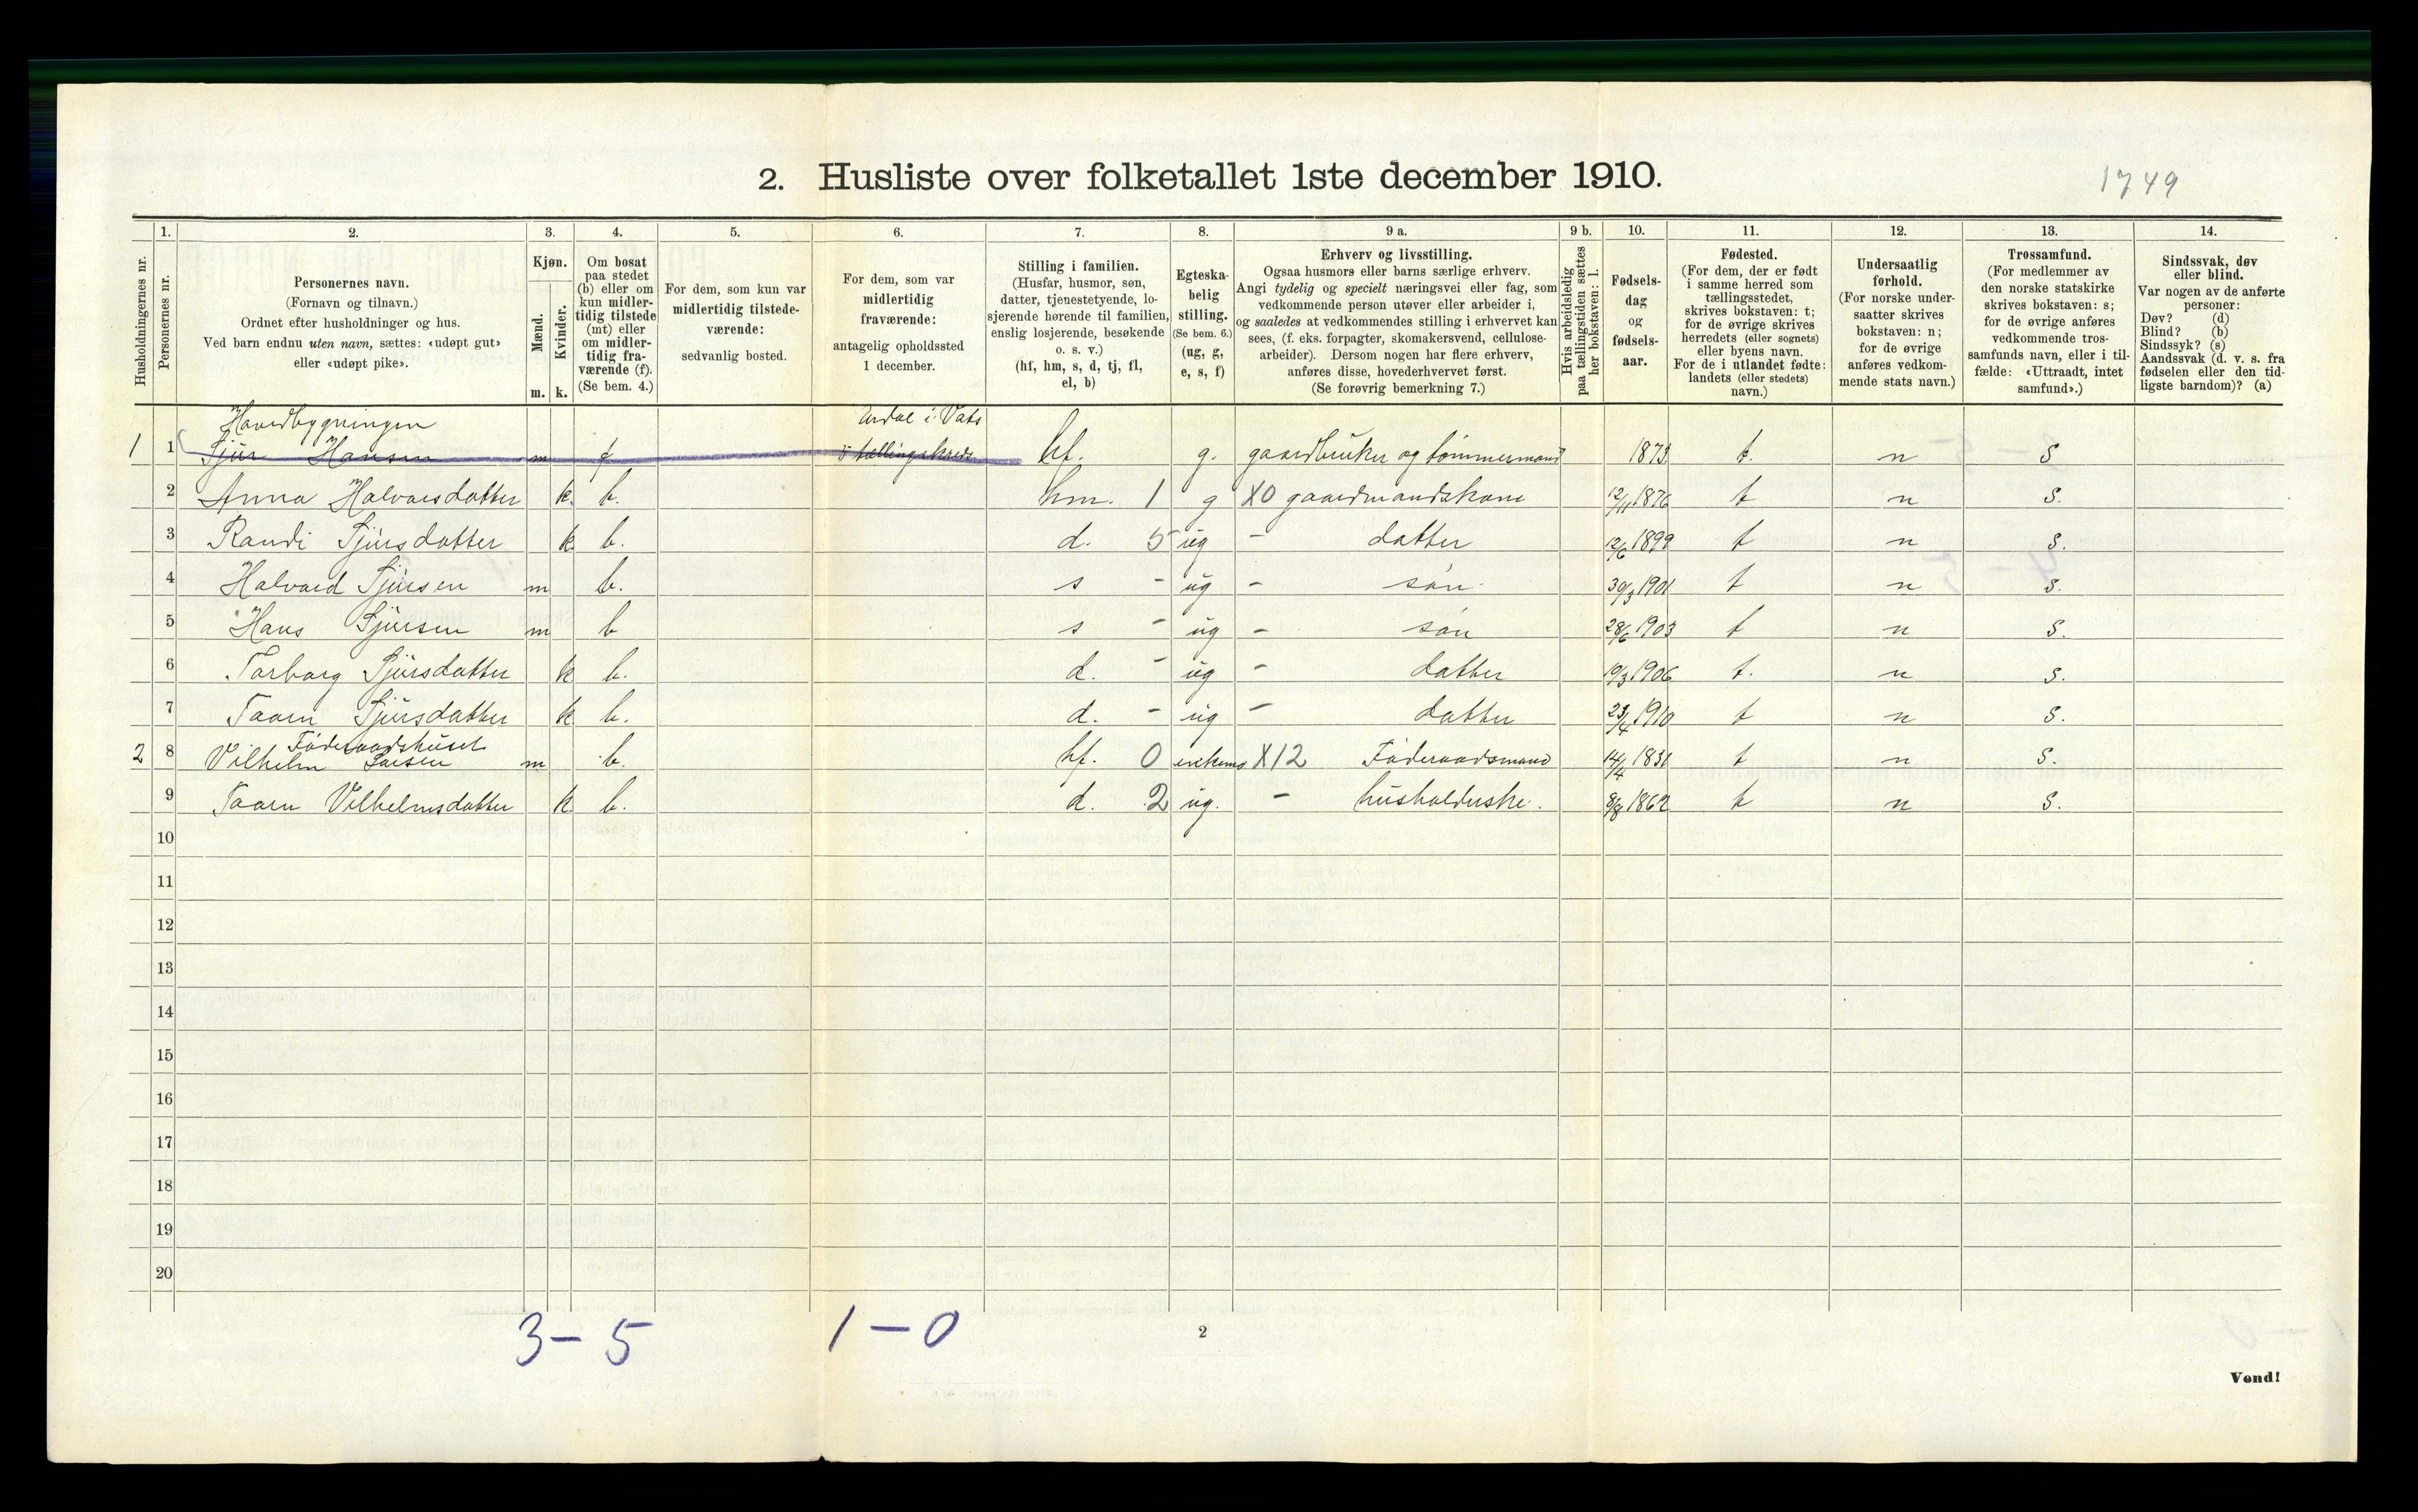 2. Husliste over folketallet 1ste december 1910.
1749
Husholdningernes nr.
1.
Personernes nr.
2.
Personernes navn.
(Fornavn og tilnavn.)
Ordnet efter husholdninger og hus.
Ved barn endnu uten navn, sættes: «udøpt gut»
eller «udøpt pike».
3.
Kjøn.
Mænd.
Kvinder.
m. k.
4.
Om bosat
paa stedet
(b) eller om
kun midler-
tidig tilstede
(mt) eller
om midler-
tidig fra-
værende (f).
(Se bem. 4.)
5.
For dem, som kun var
midlertidig tilstede-
værende:
sedvanlig bosted.
6.
For dem, som var
midlertidig
fraværende:
antagelig opholdssted
1 december.
7.
Stilling i familien.
(Husfar, husmor, søn,
datter, tjenestetyende, lo-
sjerende hørende til familien,
enslig losjerende, besøkende
o. s. v.)
(hf, hm, s, d, tj, fl,
el, b)
8.
Egteska-
belig
stilling.
(Se bem. 6.)
(ug, g,
e, s, f)
9 a.
Erhverv og livsstilling.
Ogsaa husmors eller barns særlige erhverv.
Angi tydelig og specielt næringsvei eller fag, som
vedkommende person utøver eller arbeider i,
og saaledes at vedkommendes stilling i erhvervet kan
sees, (f. eks. forpagter, skomakersvend, cellulose-
arbeider). Dersom nogen har flere erhverv,
anføres disse, hovederhvervet først.
(Se forøvrig bemerkning 7.)
9 b.
Hvis arbeidsledig
paa tællingstiden sættes
her bokstaven: l.
10.
Fødsels-
dag
og
fødsels-
aar.
11.
Fødested.
(For dem, der er født
i samme herred som
tællingsstedet,
skrives bokstaven: t;
for de øvrige skrives
herredets (eller sognets)
eller byens navn.
For de i utlandet fødte:
landets (eller stedets)
navn.)
12.
Undersaatlig
forhold.
(For norske under-
saatter skrives
bokstaven: n;
for de øvrige
anføres vedkom-
mende stats navn.)
13.
Trossamfund.
(For medlemmer av
den norske statskirke
skrives bokstaven: s;
for de øvrige anføres
vedkommende tros-
samfunds navn, eller i til-
fælde: «Uttraadt, intet
samfund».)
14.
Sindssvak, døv
eller blind.
Var nogen av de anførte
personer:
Døv? (d)
Blind? (b)
Sindssyk? (s)
Aandssvak (d. v. s. fra
fødselen eller den tid-
ligste barndom)? (a)
Hovedbygningen
Årdal i Vats
1 1 Sjur Hansen m f 5 tællingskreds hf. g. gaardbruker og tømmermand 1873 t. n S
2 Anna Halvorsdatter k. b. hm. 1 g X0 gaardmandskone 12/11 1876 t n S.
3 Randi Sjursdatter k b. d. 5 ug - datter 12/6 1899 t n S.
4 Halvard Sjursen m b. s - ug - søn 30/3 1901 t n S.
5 Hans Sjursen m b s - ug - søn 28/6 1903 t n S.
6 Torborg Sjursdatter k b. d. - ug - datter 10/3 1906 t. n S.
7 Taarn Sjursdatter k b. d. - ug - datter 23/4 1910 t n S.
Føderaadshuset
2 8 Vilhelm Larsen m b. hf. 0 enkem X12 Føderaadsmand 14/4 1831 t n S.
9 Taarn Vilhelmsdatter k. b. d. 2 ug. - husholderske. 8/8 1862 t n S.
10
11
12
13
14
15
16
17
18
19
20
3 - 5 1 - 0
2
Vend!